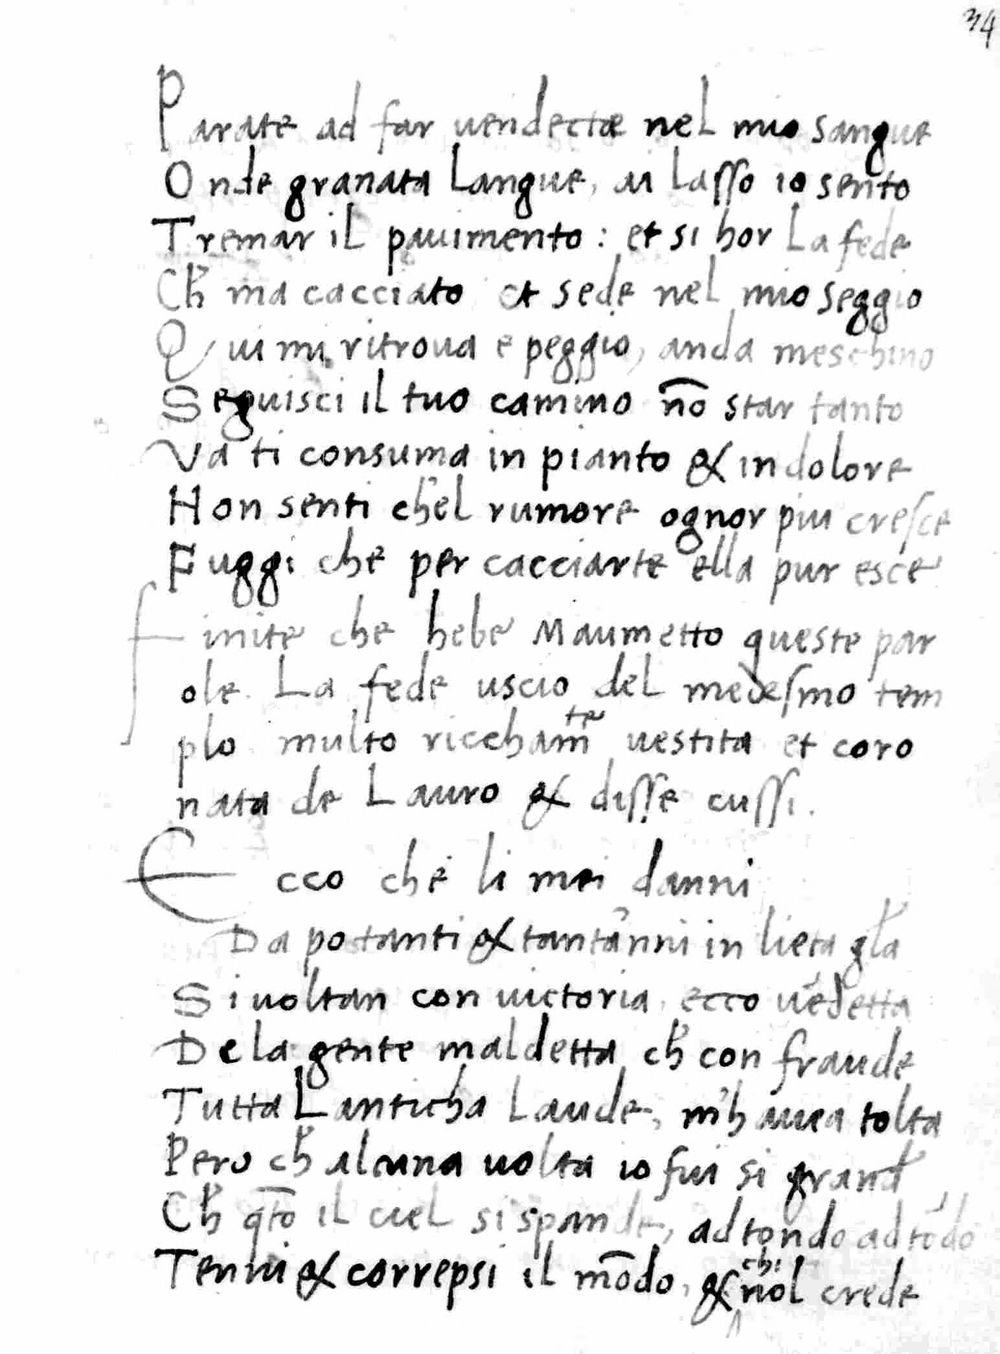 34
Parate ad far uendectæ nel mio sangue
Onde granata Langue, ai lasso io sento
Tremar il pauimento : et si hor La fede
Ch̄ ma cacciato et sede nel mio seggio
Qui mi ritroua e peggio, anda meschino
Seguisci il tuo camino nō star tanto
Va ti consuma in pianto & in dolore
Non senti ch'el rumore ognor piu cresce
Fuggi che per cacciarte ella pur esce
Finite che hebe Maumetto queste par
ole. La fede uscio del medesmo tem
plo multo riccham̄te uestita et coro
nata de Lauro & disse cussi.
Ecco che li mei danni
Da po tanti & tant'anni in lieta gl̄a
Si uoltan con uictoria, ecco uēdetta
De la gente maldetta ch̄ con fraude
Tutta Lanticha Laude, m'hauea tolta
Pero ch̄ alcuna uolta io fui si grand
Ch̄ q̄to il ciel si spande, ad tondo ad tōdo
Tenni & correpsi il mōdo, & chi nol crede